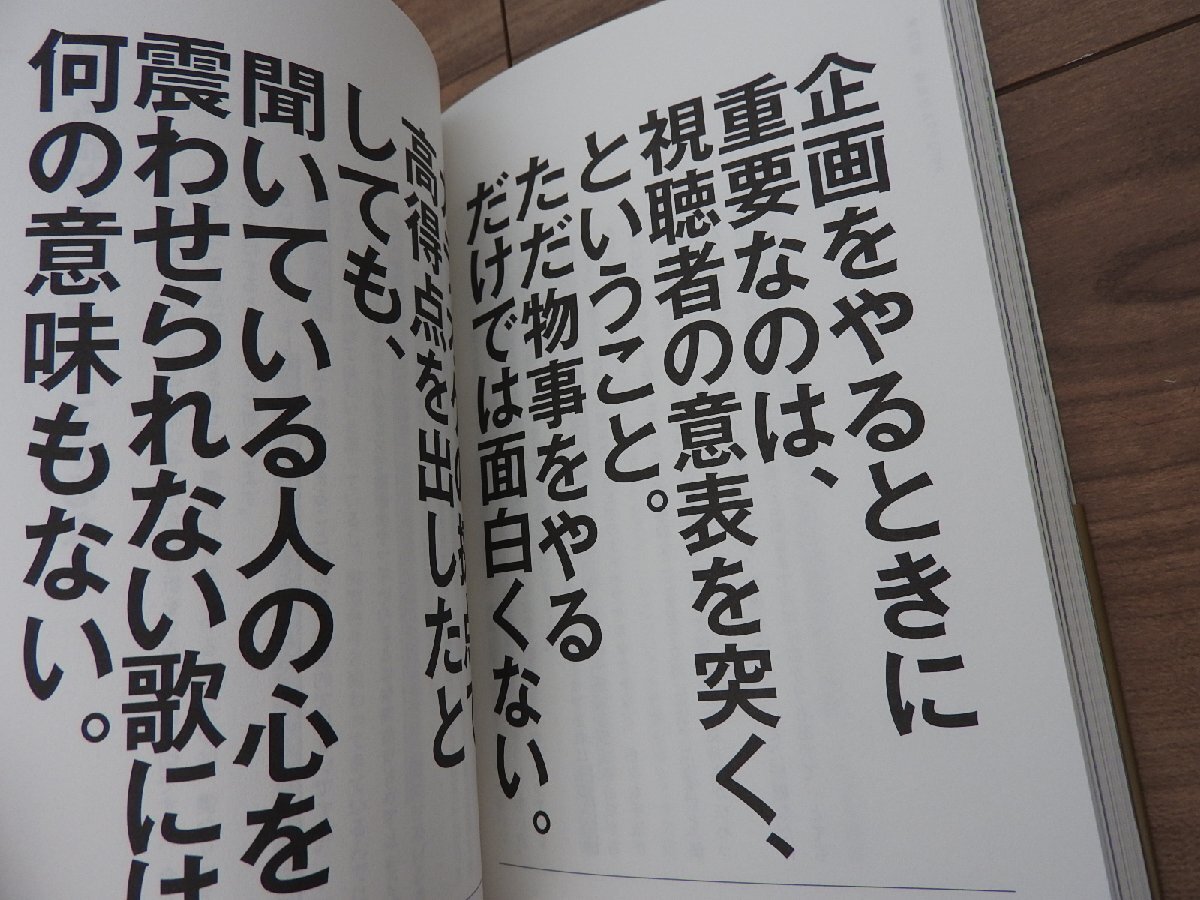 企画をやるときに
重要なのは、
視聴者の意表を突く、
ということ。
ただ物事をやる
だけでは面白くない。
高得点を出したと
しても、
聞いている人の心を
震わせられない歌には
何の意味もない。